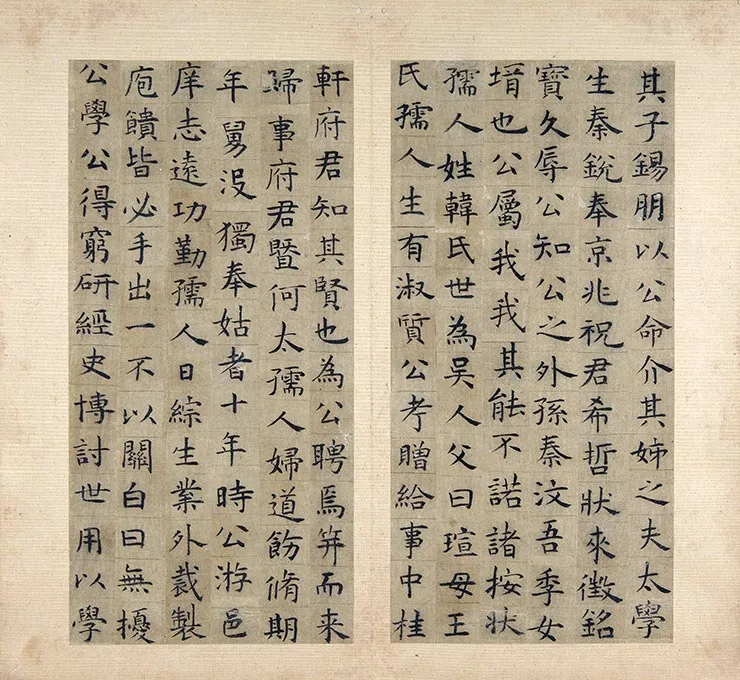 其子錫朋以公命介其姊之夫太學
生秦銳奉京兆祝君希哲狀來徵銘
寶久辱公知公之外孫秦汶吾季女
壻也公屬我我其能不諾諸按狀
孺人姓韓氏世為吳人父曰瑄母王
氏孺人生有淑質公考贈給事中桂
軒府君知其賢也為公聘焉笄而来
歸事府君暨何太孺人婦道飭脩期
年舅没獨奉姑者十年時公游邑
庠志遠功勤孺人日綜生業外裁製
庖饋皆必手出一不以關白曰無擾
公學公得窮研經史博討世用以學